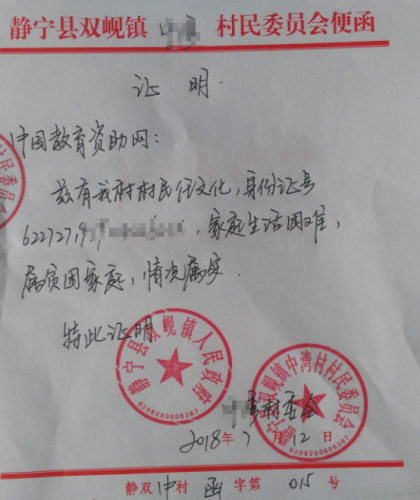 静宁县双岘镇 村民委员会便函
证 明.
中国教育资助网:
兹有我村村民任文化,身份证号
622727,家庭生活困难,
属贫困家庭,情况属实.
特此证明
静宁县双岘镇人民政府
6208260006387
静宁县双岘镇中湾村村民委员会
村委会
2018年7月12日
静双中村 函 字第 015 号
村民委员会